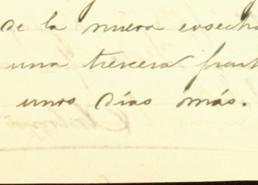 de la nueva cosecha
una tercera part
unos días más.